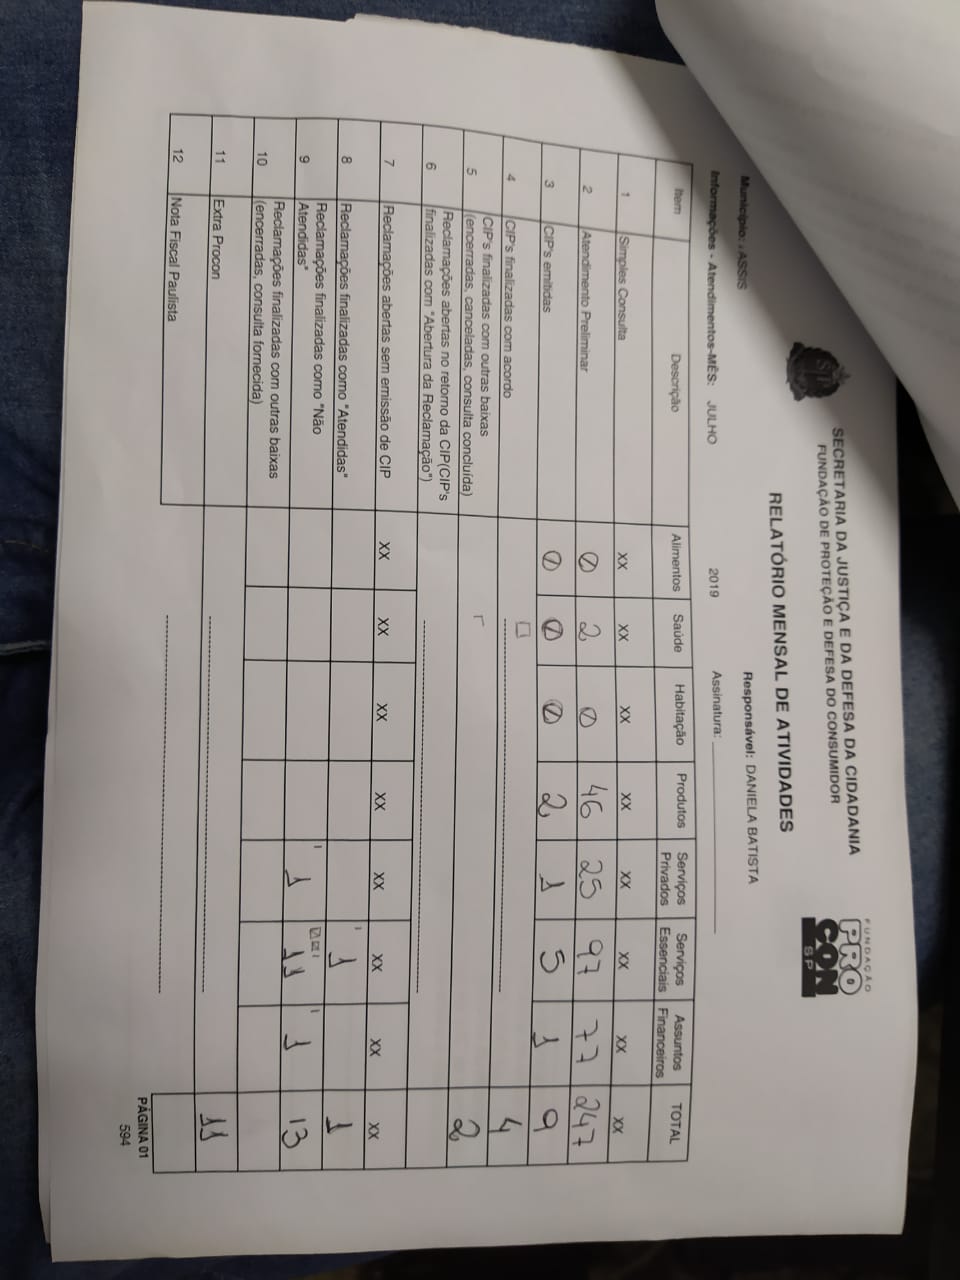 SECRETARIA DA JUSTIÇA E DA DEFESA DA CIDADANIA
FUNDAÇÃO DE PROTEÇÃO E DEFESA DO CONSUMIDOR
FUNDAÇÃO
PRO
CON
SP
RELATÓRIO MENSAL DE ATIVIDADES
Município: ASSIS
Responsável: DANIELA BATISTA
Informações - Atendimentos-MÊS: JULHO 2019
Assinatura:
Item Descrição Alimentos Saúde Habitação Produtos Serviços Privados Serviços Essenciais Assuntos Financeiros TOTAL
1 Simples Consulta XX XX XX XX XX XX XX XX
2 Atendimento Preliminar 0 2 0 46 25 97 77 247
3 CIP's emitidas 0 0 0 2 1 5 1 9
4 CIP's finalizadas com acordo 4
5 CIP's finalizadas com outras baixas
(encerradas, canceladas, consulta concluída) 2
6 Reclamações abertas no retorno da CIP(CIP's
finalizadas com "Abertura da Reclamação")
7 Reclamações abertas sem emissão de CIP XX XX XX XX XX XX XX XX
8 Reclamações finalizadas como "Atendidas" 1 1
9 Reclamações finalizadas como "Não
Atendidas" 1 11 1 13
10 Reclamações finalizadas com outras baixas
(encerradas, consulta fornecida)
11 Extra Procon 11
12 Nota Fiscal Paulista
PÁGINA 01
594